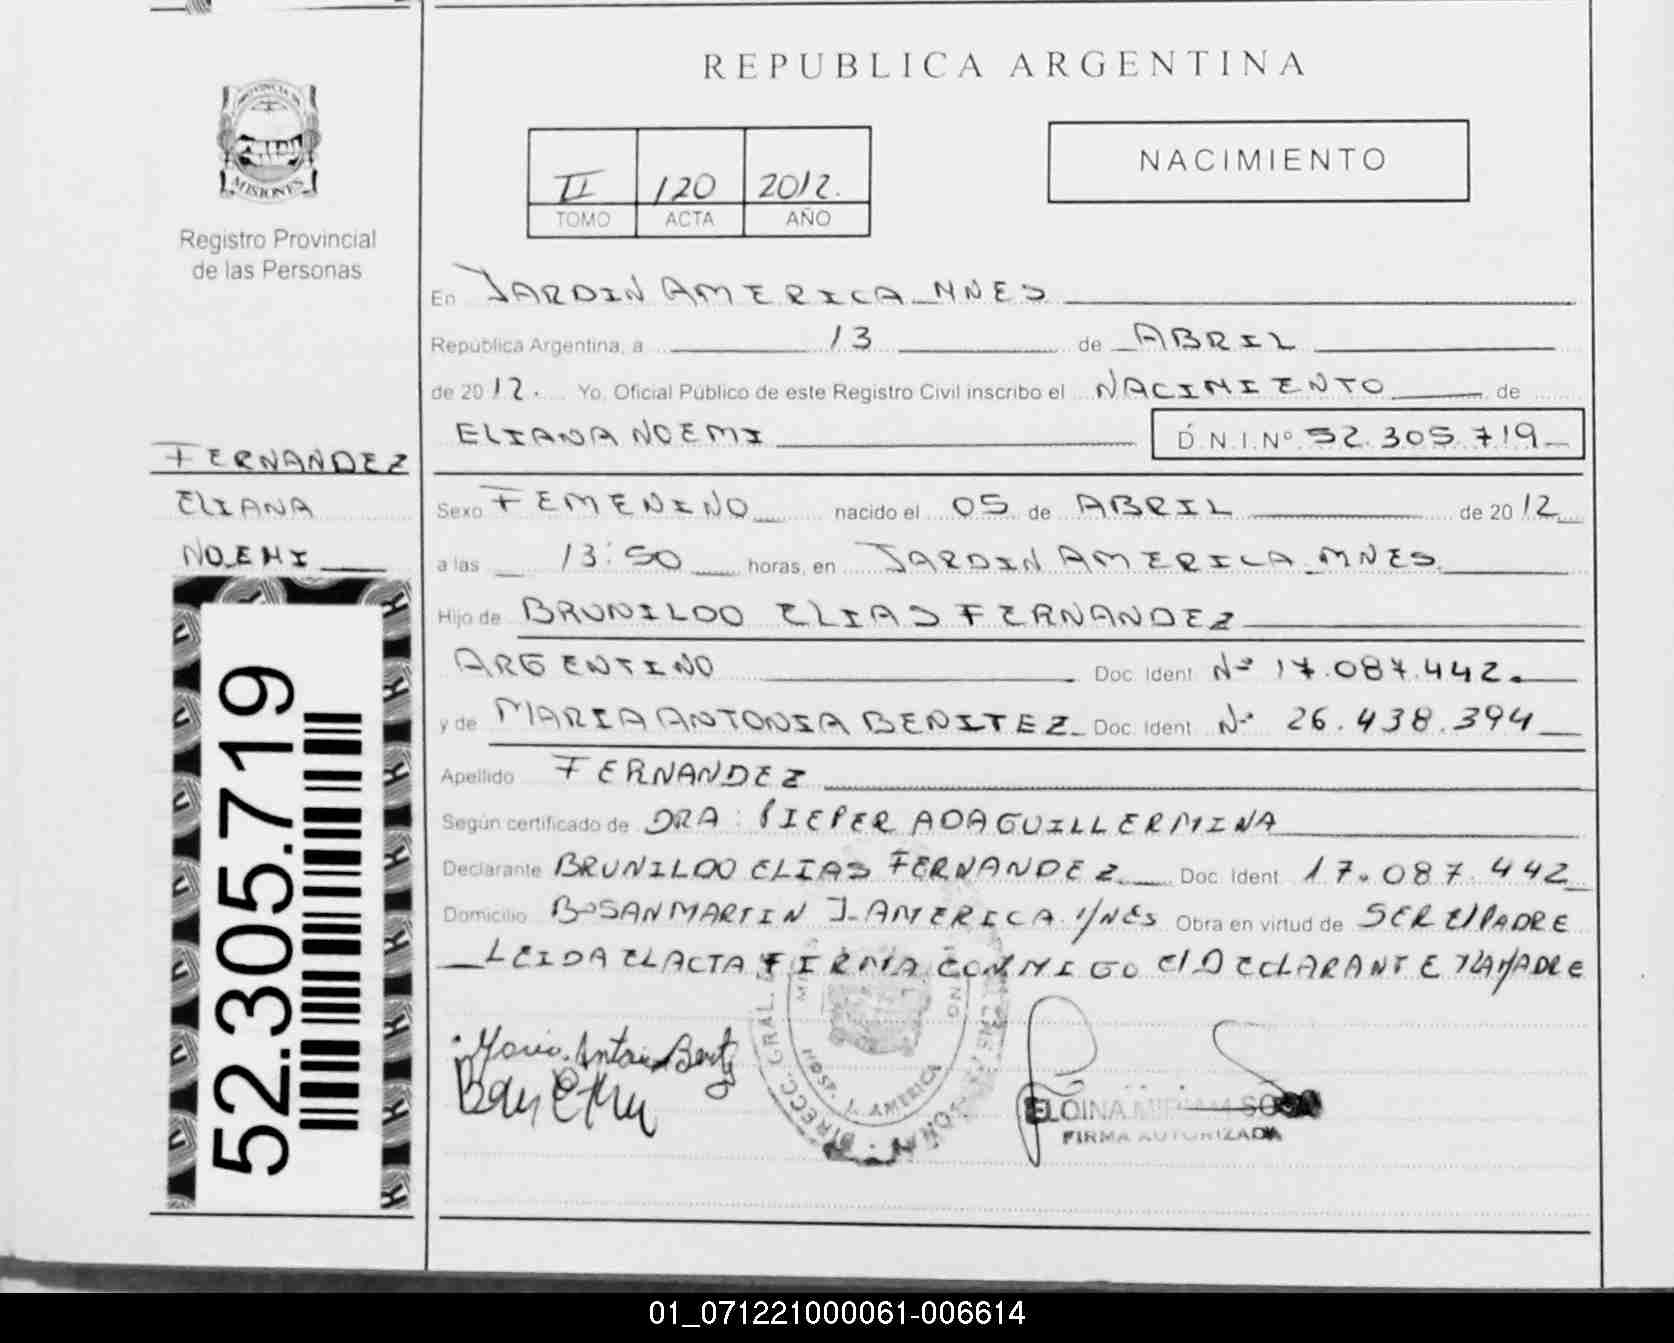 REPUBLICA ARGENTINA
PROVINCIA DE
MISIONES
Registro Provincial
de las Personas
II 120 2012.
TOMO ACTA AÑO
NACIMIENTO
En JARDIN AMERICA MNES
República Argentina, a 13 de ABRIL
de 2012. Yo, Oficial Público de este Registro Civil inscribo el NACIMIENTO de
ELIANA NOEMI D.N.I.Nº 52.305.719
FERNANDEZ
ELIANA
NOEMI
52.305.719
Sexo FEMENINO nacido el 05 de ABRIL de 2012
a las 13:50 horas, en JARDIN AMERICA MNES
Hijo de BRUNILDO ELIAS FERNANDEZ
ARGENTINO Doc. Ident. Nº 17.087.442.
y de MARIA ANTONIA BENITEZ Doc. Ident. Nº 26.438.394
Apellido FERNANDEZ
Según certificado de DRA: PIEPER ADA GUILLERMINA
Declarante BRUNILDO ELIAS FERNANDEZ Doc. Ident. 17.087.442
Domicilio Bº SAN MARTIN J. AMERICA M/NES Obra en virtud de SER El PADRE
LEIDA EL ACTA FIRMA CONMIGO El DECLARANTE Y LA MADRE
DIRECC. GRAL.
HOSP. J. AMERICA
ELOINA MIRIAM SOSA
FIRMA AUTORIZADA
01_071221000061-006614